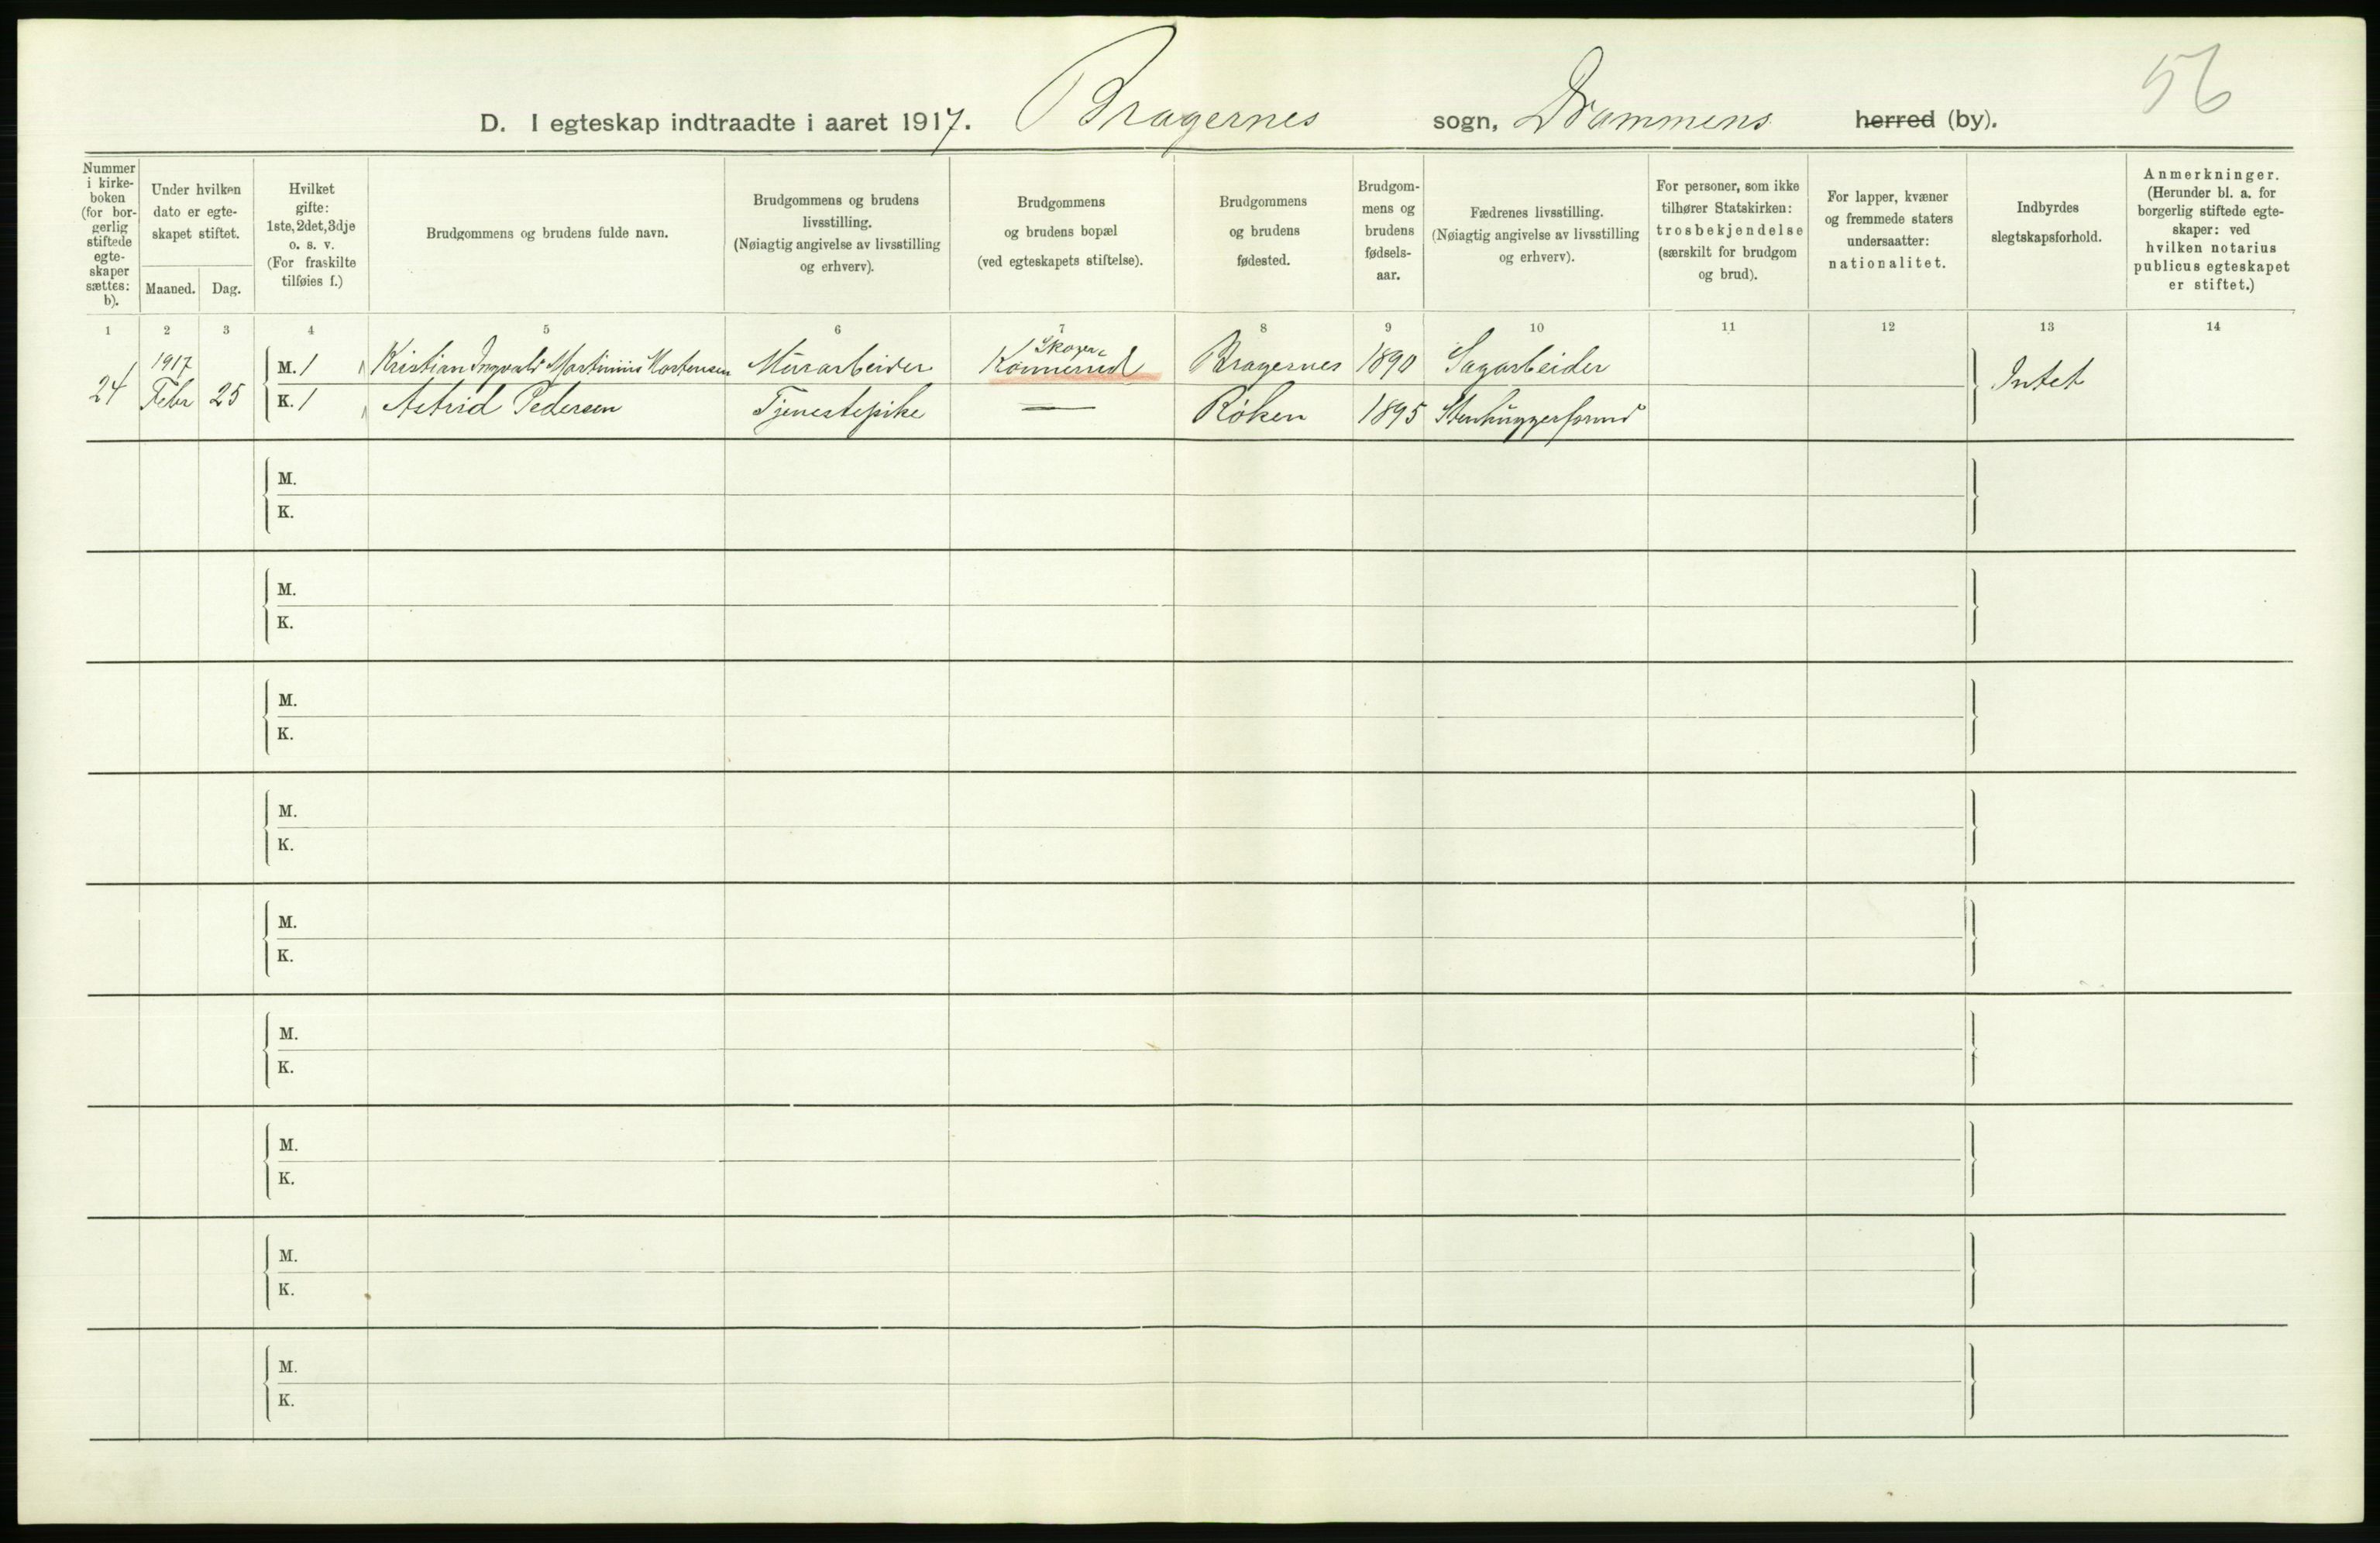 56
D. I egteskap indtraadte i aaret 1917. Bragernes sogn, Drammens herred (by).
Nummer i kirke- boken (for bor- gerlig stiftede egte- skaper sættes: b).
Under hvilken dato er egte- skapet stiftet.
Maaned. Dag.
Hvilket gifte: 1ste, 2det, 3dje o. s. v. (For fraskilte tilføies f.)
Brudgommens og brudens fulde navn.
Brudgommens og brudens livsstilling. (Nøiagtig angivelse av livsstilling og erhverv).
Brudgommens og brudens bopæl (ved egteskapets stiftelse).
Brudgommens og brudens fødested.
Brudgom- mens og brudens fødsels- aar.
Fædrenes livsstilling. (Nøiagtig angivelse av livsstilling og erhverv).
For personer, som ikke tilhører Statskirken: trosbekjendelse (særskilt for brudgom og brud).
For lapper, kvæner og fremmede staters undersaatter: nationalitet.
Indbyrdes slegtskapsforhold.
Anmerkninger. (Herunder bl. a. for borgerlig stiftede egte- skaper: ved hvilken notarius publicus egteskapet er stiftet.)
1 2 3 4 5 6 7 8 9 10 11 12 13 14
1917 Skoger
M. 1 Kristian Ingvald Martinius Mortensen Murarbeider Konnerud Bragernes 1890 Sagarbeider
24 Febr 25 Intet
K. 1 Astrid Pedersen Tjenestepike — Røken 1895 Stenhuggerformd
M.
K.
M.
K.
M.
K.
M.
K.
M.
K.
M.
K.
M.
K.
M.
K.
M.
K.